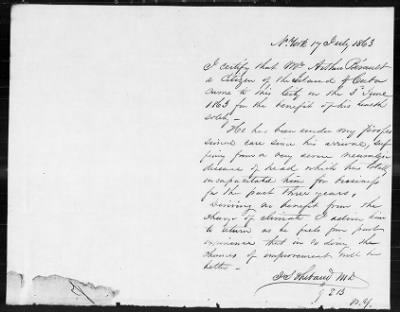 N. York 17 July 1863
I certify that Mr Arthur
a Citizen of the Island of Cuba
came to this City on the 5 June
1863 for the benefit of his health
solely —
He has been under my profes
sional care since his arrival, suf
fering from a very severe neuralgic
disease of head which has totally
incapacitated him for business
for the past three years.
Deriving no benefit from the
change of climate I advise him
to return as he feels from past
experience that in so doing the
chances of improvement will be
better —
M.D.
N.Y.